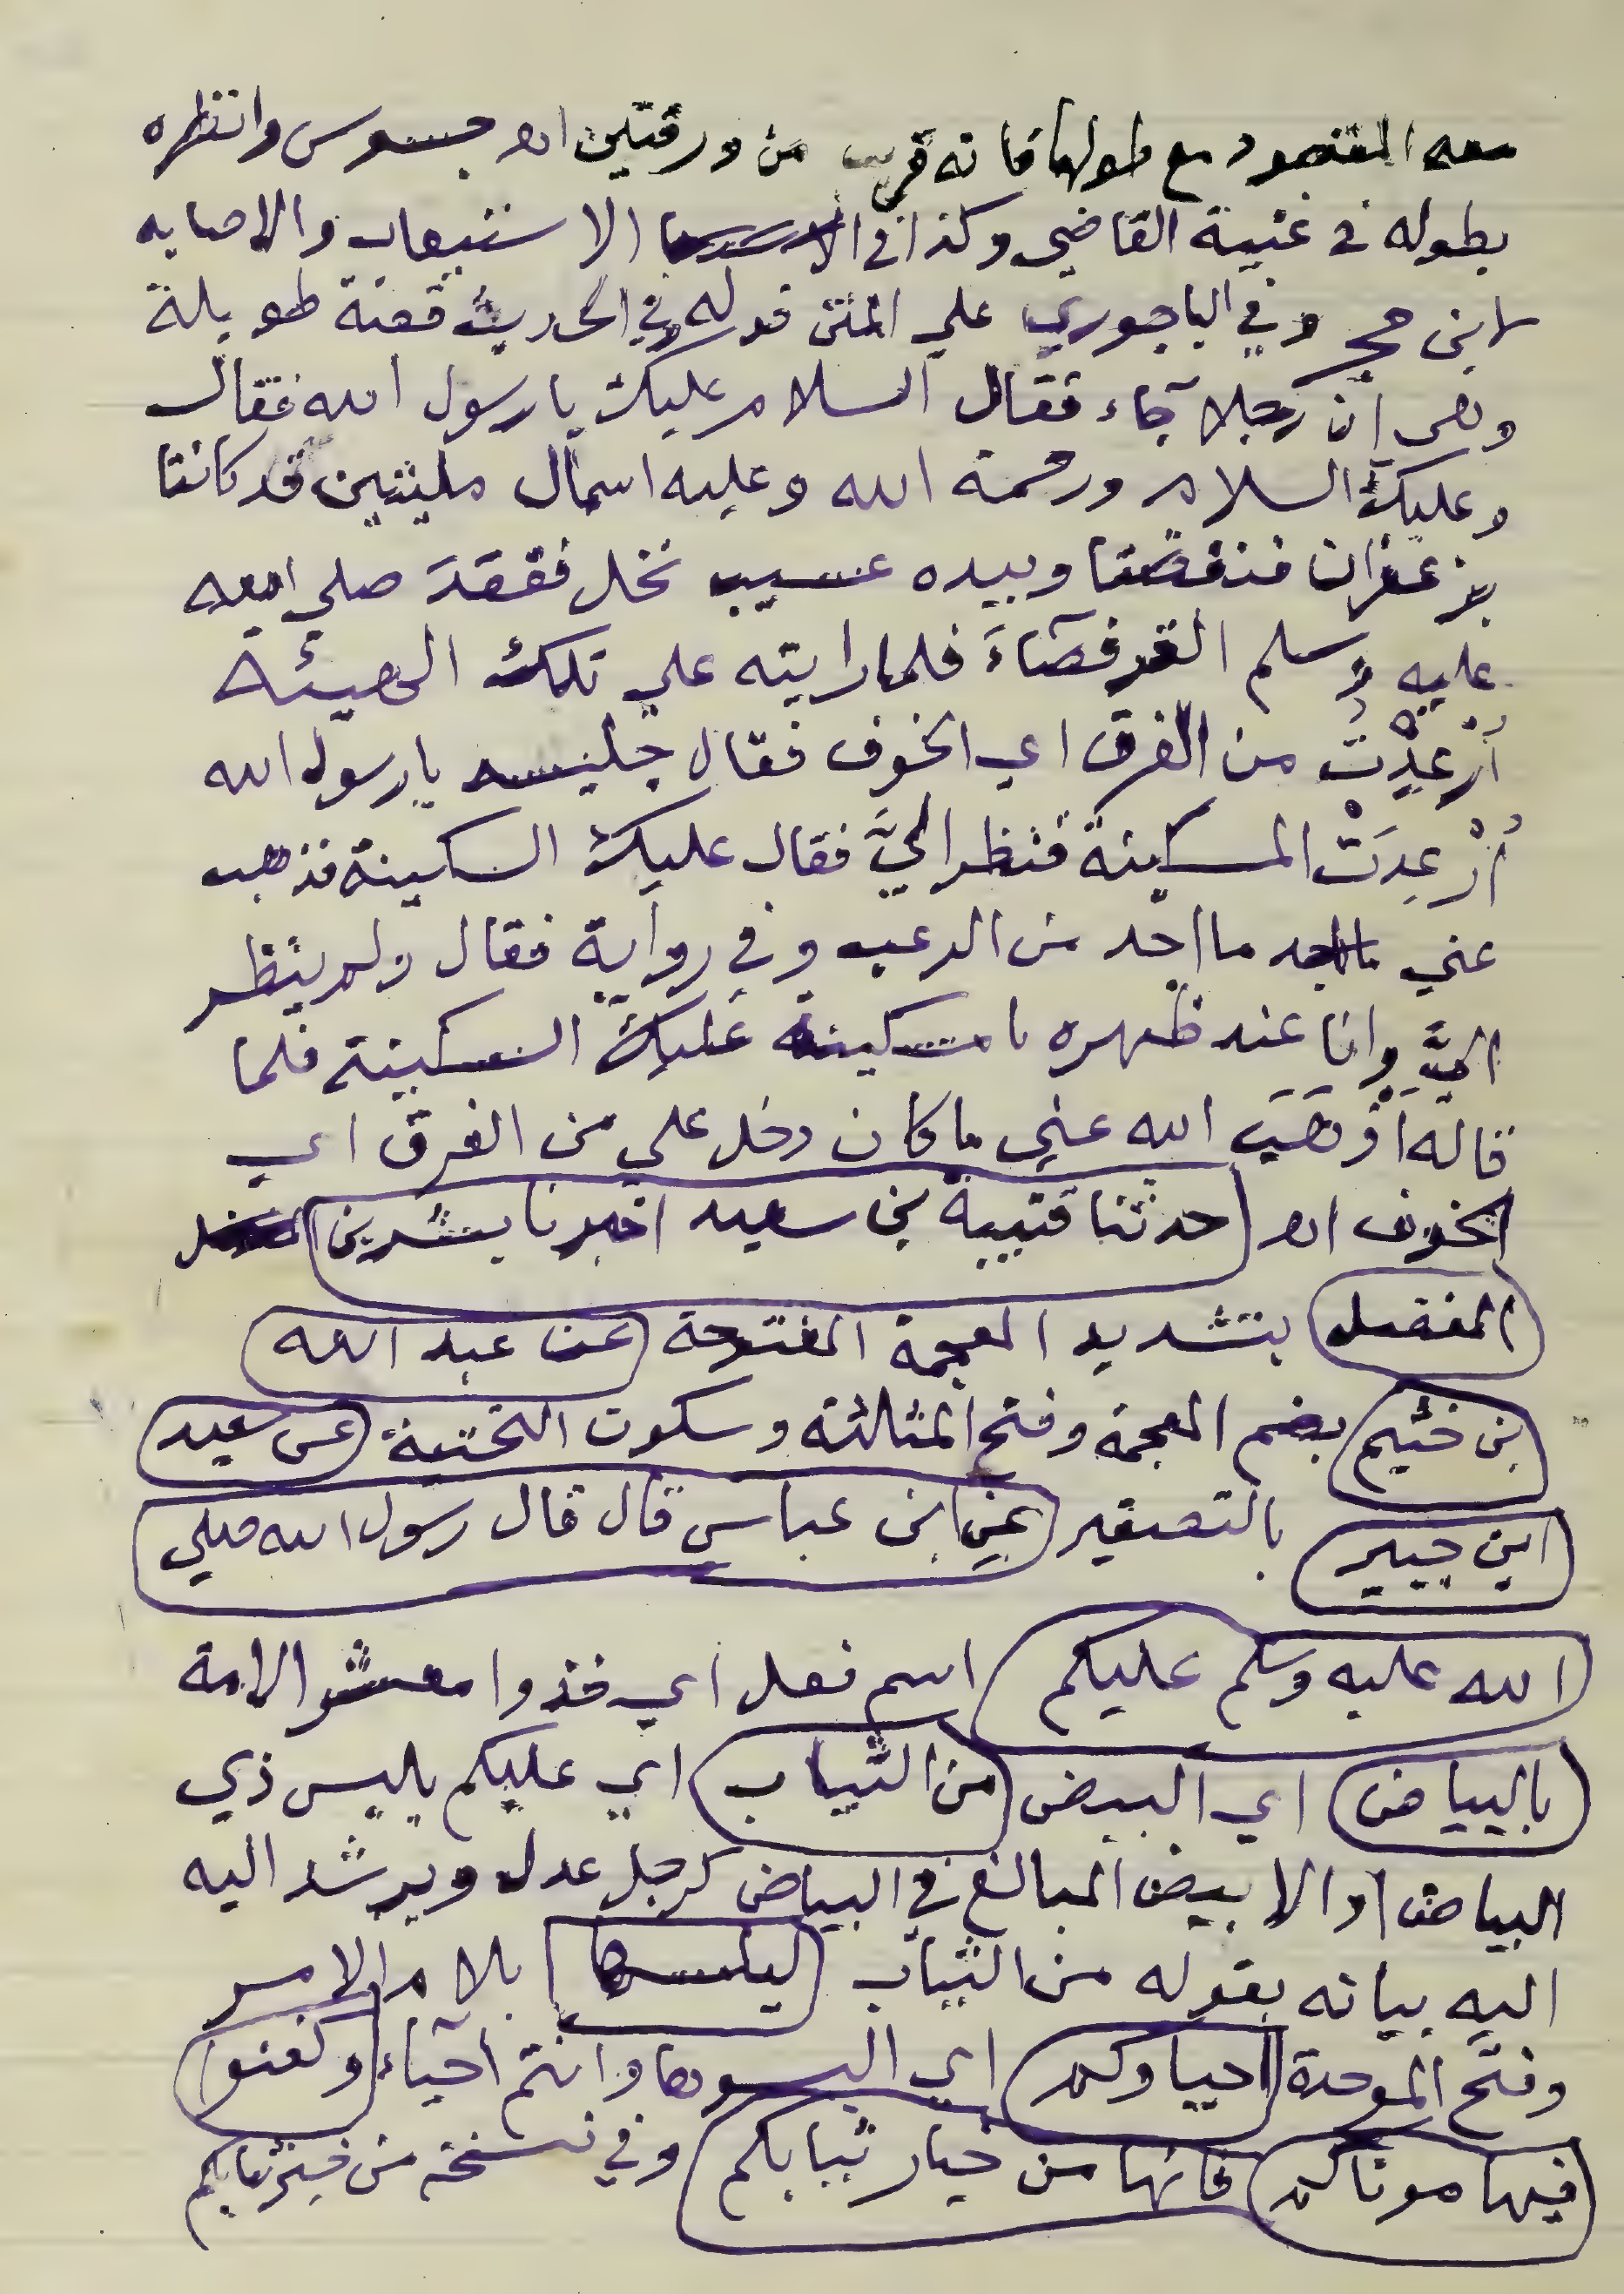 معه المقصود مع طولها فانه قريب من ورقتين اه جسوس وانظره
بطوله في غنية القاضي وكذا في الاستيعاب والاصابه
لابن حجر وفي الباجوري علي المتن قوله وفي الحديث قصة طويلة
وهي أن رجلا جآء فقال السلام عليك يا رسول الله فقال
وعليك السلام ورحمة الله وعليه اسمال مليتين قد كانتا
بزعفران فنفضتا وبيده عسيب نخل فقعَدَ صلي الله
عليه وسلم القرفصآءَ فلما رايته علي تلك الهيئة
أُرْعِدْتُ من الفرق اي الخوف فقال جليسه يا رسول الله
أُرْعِدَتْ المسكينة فنظر اليَّ فقال عليك السكينة فذهب
عني ما اجد من الرعب وفي رواية فقال ولم ينظر
اليَّ وانا عند ظهره يا مسكينة عليك السكينة فلما
قاله أذهَبَ الله عني ما كان دخل علي من الفرق اي
الخوف اه حدثنا قتيبة بن سعيد اخبرنا بشر بن
المفضل بتشديد المعجمة المفتوحة عن عبد الله
بن خثيم بضم المعجمة وفتح المثالثة وسكون التحتية عن سعيد
ابن جبير بالتصغير عن ابن عباس قال قال رسول الله صلي
الله عليه وسلم عليكم اسم فعل اي خذوا معشر الامة
بالبياض اي البيض من الثياب اي عليكم بلبس ذي
البياض او الابيض المبالغ في البياض كرجل عدل ويرشد اليه
اليه بيانه بقوله من الثياب ليلبسها بلام الامر
وفتح الموحدة احياوكم اي البسوها وانتم أحيآء وكفنوا
فيها موتاكم فانها من خيار ثيابكم وفي نسخة من خير ثيابكم